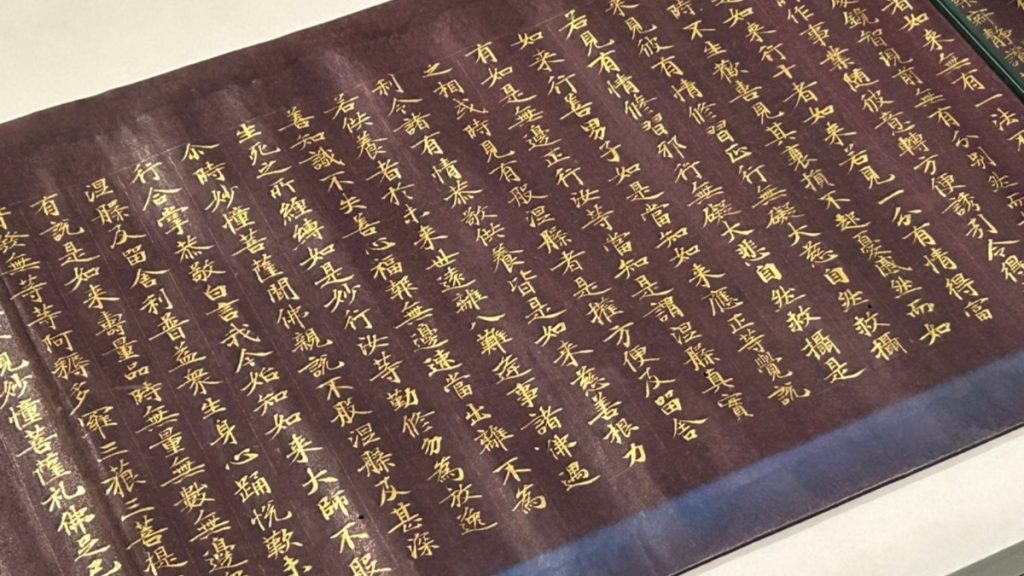 有如來無有一法不
鏡智現前無有分別然而
作事業隨彼意轉方便誘引令得
如來行十者如來若見一分有情得富
時不生歡喜見其衰損不起憂慼然而如
來見彼有情修習正行無礙大慈自然救攝
若見有情修習邪行無礙大悲自然救攝是
如來行善男子如是當知如來應正等覺說
有如是無邊正行汝等當知是謂涅槃真實
之相或時見有般涅槃者是權方便及留舍
利令諸有情恭敬供養皆是如來慈善根力
若供養者於未來世遠離八難逢事諸佛遇
善知識不失善心福報無邊速當出離不為
生死之所纏縛如是妙行汝等勤修勿為放逸
尒時妙幢菩薩聞佛親說不般涅槃及甚深
行合掌恭敬白言我今始知如來大師不般
涅槃及留舍利普益衆生身心踊悅歎未
有說是如來壽量品時無量無數無邊
發無等等阿耨多羅三藐三菩提
見妙幢菩薩礼佛足已